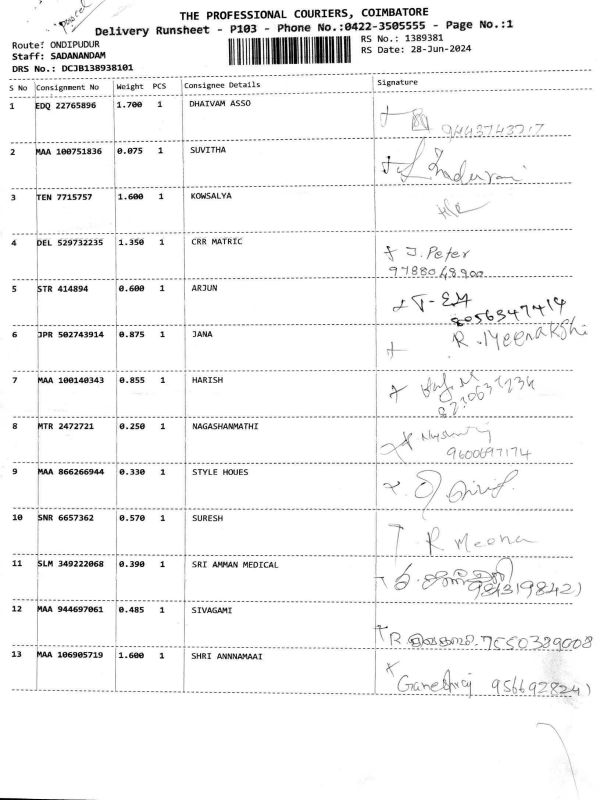 parcel
THE PROFESSIONAL COURIERS, COIMBATORE
Delivery Runsheet - P103 - Phone No.:0422-3505555 - Page No.:1
Route: ONDIPUDUR
RS No.: 1389381
Staff: SADANANDAM
RS Date: 28-Jun-2024
DRS No.: DCJB138938101
S No Consignment No Weight PCS Consignee Details Signature
1 EDQ 22765896 1.700 1 DHAIVAM ASSO
9443743217
2 MAA 100751836 0.075 1 SUVITHA
3 TEN 7715757 1.600 1 KOWSALYA
4 DEL 529732235 1.350 1 CRR MATRIC
J. Peter
9788048900
5 STR 414894 0.600 1 ARJUN
8056347414
6 JPR 502743914 0.875 1 JANA
R. Meenakshi
7 MAA 100140343 0.855 1 HARISH
8 MTR 2472721 0.250 1 NAGASHANMATHI
9600697174
9 MAA 866266944 0.330 1 STYLE HOUES
10 SNR 6657362 0.570 1 SURESH
R Meena
11 SLM 349222068 0.390 1 SRI AMMAN MEDICAL
12 MAA 944697061 0.485 1 SIVAGAMI
7550389008
13 MAA 106905719 1.600 1 SHRI ANNNAMAAI